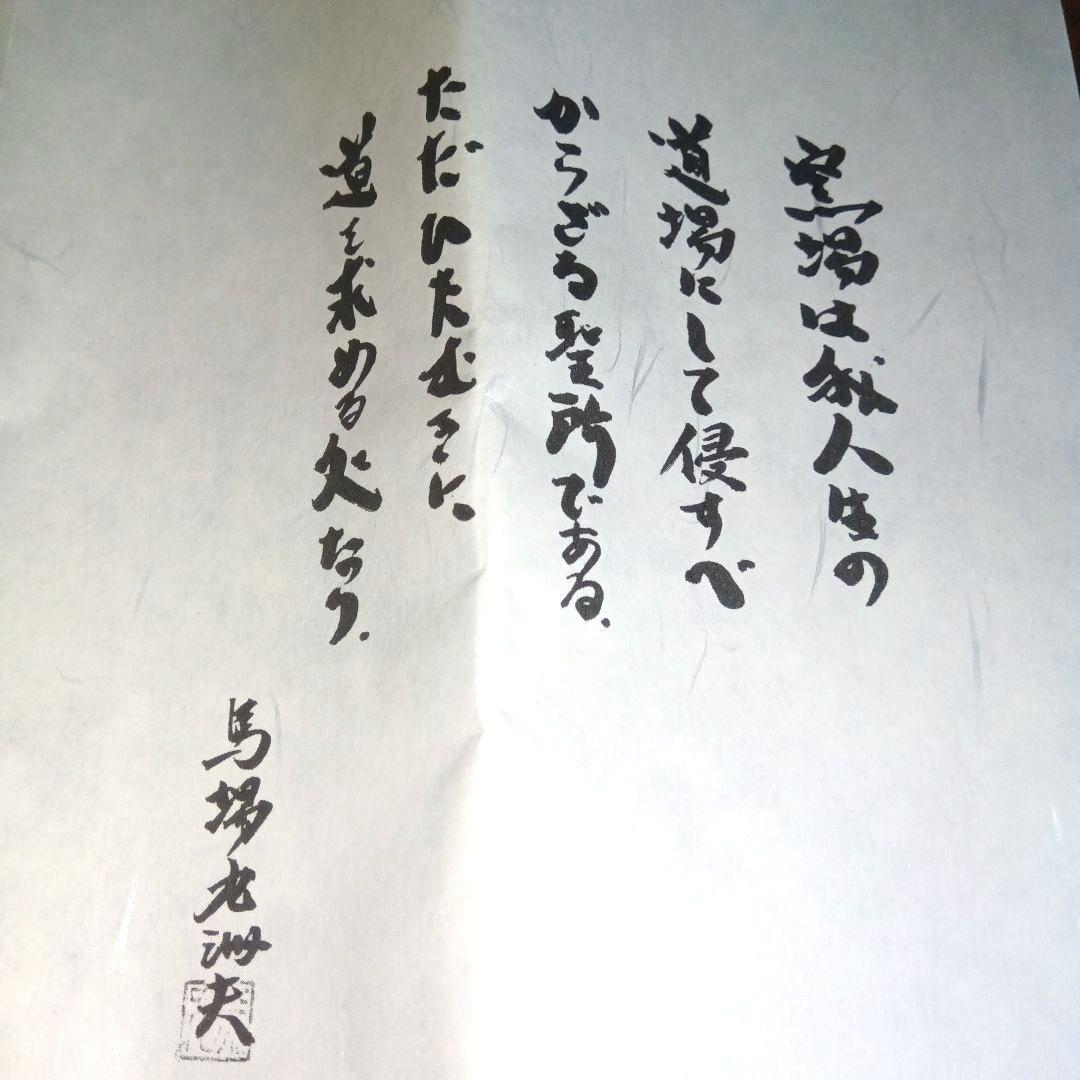 窯場は我人生の
道場にして侵すべ
からざる聖所である.
ただひたむきに、
道を求める处なり.
馬場九洲夫